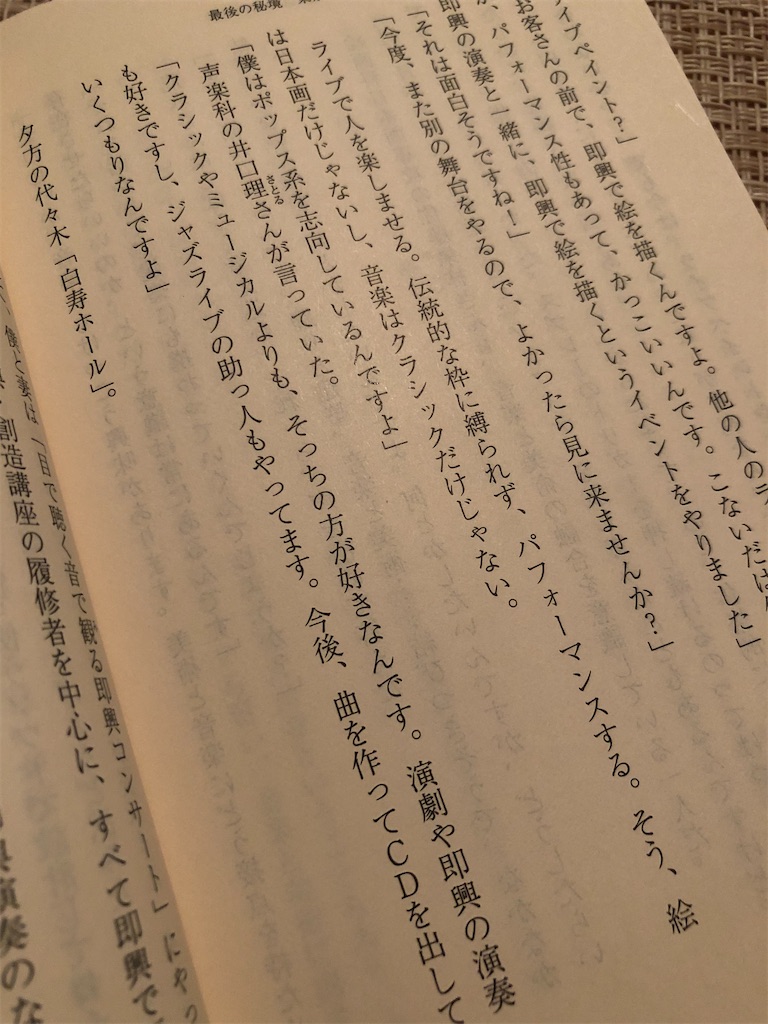 最後の秘境
イブペイント?」
お客さんの前で、即興で絵を描くんですよ。他の人のラ
、パフォーマンス性もあって、かっこいいんです。こないだは
即興の演奏と一緒に、即興で絵を描くというイベントをやりました」
「それは面白そうですね!」
「今度、また別の舞台をやるので、よかったら見に来ませんか?」
ライブで人を楽しませる。伝統的な枠に縛られず、パフォーマンスする。そう、絵
は日本画だけじゃないし、音楽はクラシックだけじゃない。
「僕はポップス系を志向しているんですよ」
声楽科の井口理さとるさんが言っていた。
「クラシックやミュージカルよりも、そっちの方が好きなんです。演劇や即興の演奏
も好きですし、ジャズライブの助っ人もやってます。今後、曲を作ってCDを出して
いくつもりなんですよ」
夕方の代々木「白寿ホール」。
僕と妻は「目で聴く音で観る即興コンサート」にやっ
創造講座の履修者を中心に、すべて即興で
興演奏のな